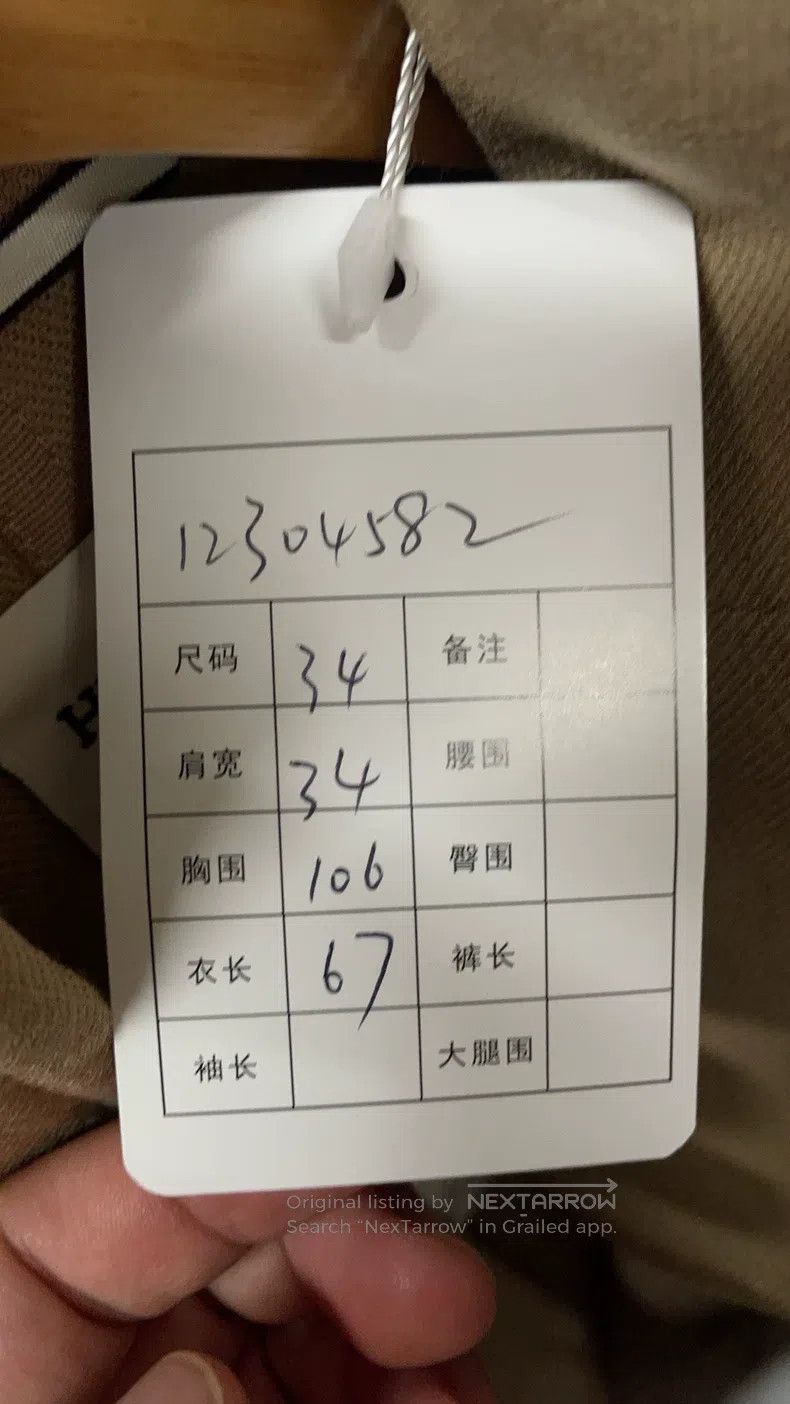 12304582
尺码 34 备注
肩宽 34 腰围
胸围 106 臀围
衣长 67 裤长
袖长 大腿围
Original listing by NEXTARROW
Search “NexTarrow” in Grailed app.